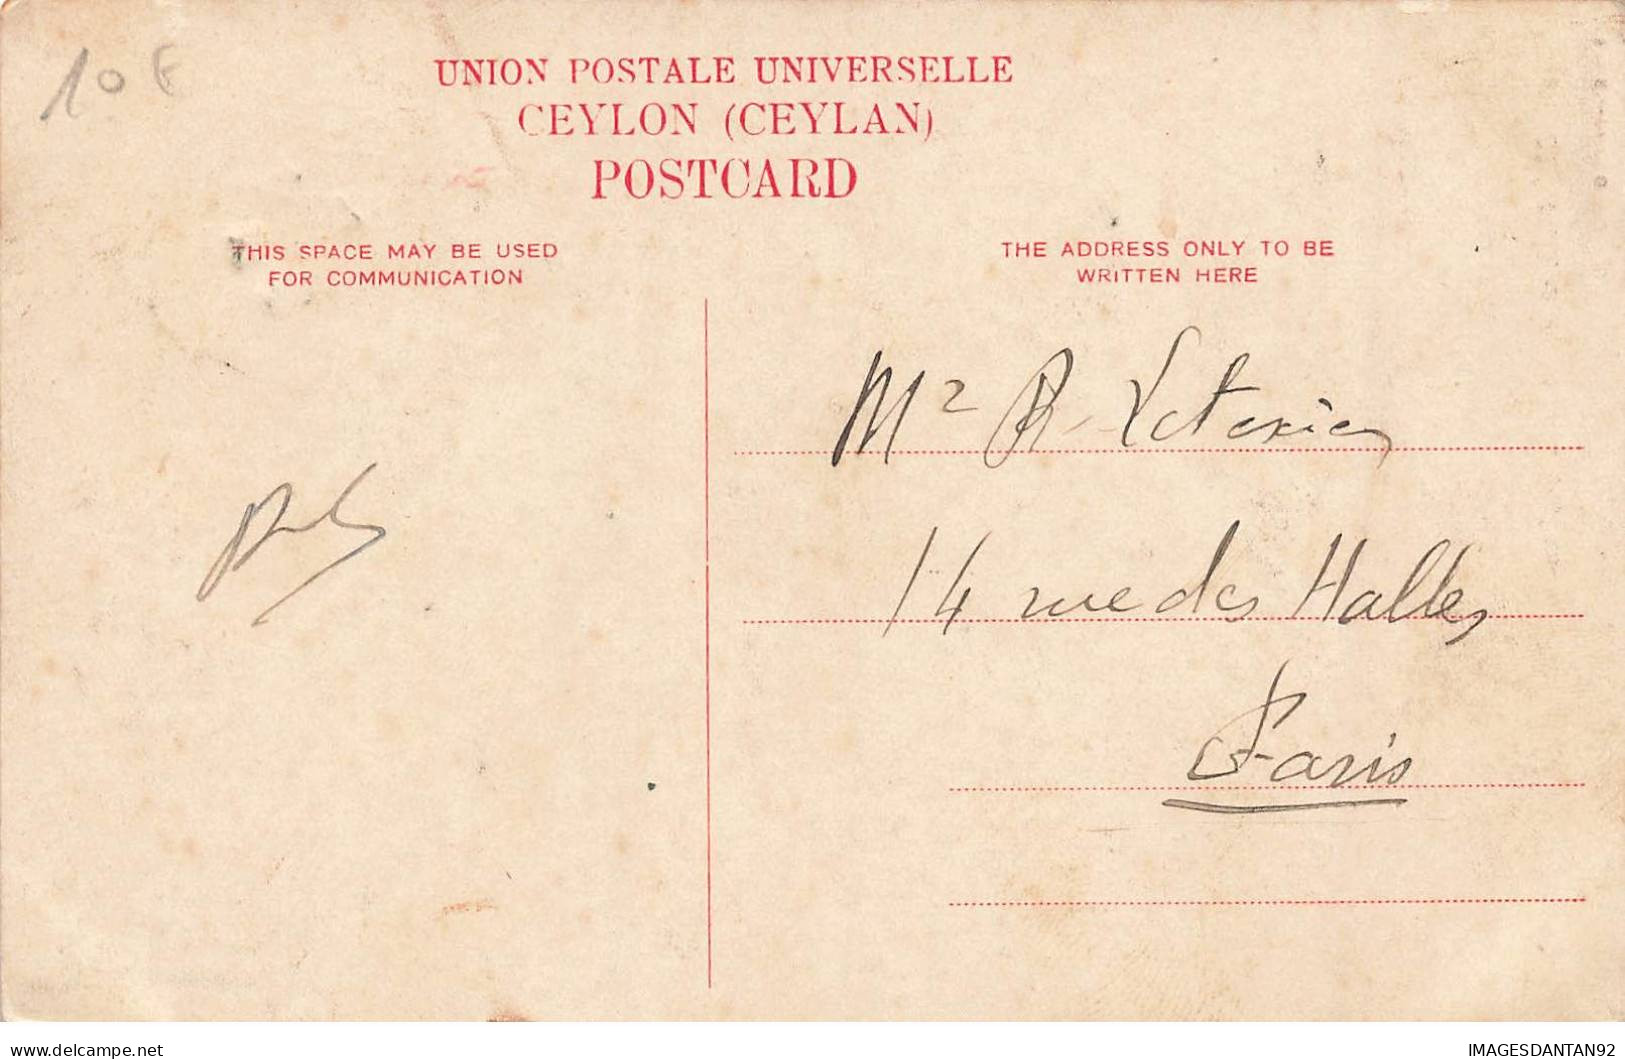 10 €
UNION POSTALE UNIVERSELLE
CEYLON (CEYLAN)
POSTCARD
THIS SPACE MAY BE USED
FOR COMMUNICATION
THE ADDRESS ONLY TO BE
WRITTEN HERE
Mr R.
14 rue des Halles
Paris
delcampe.net
IMAGESDANTAN92